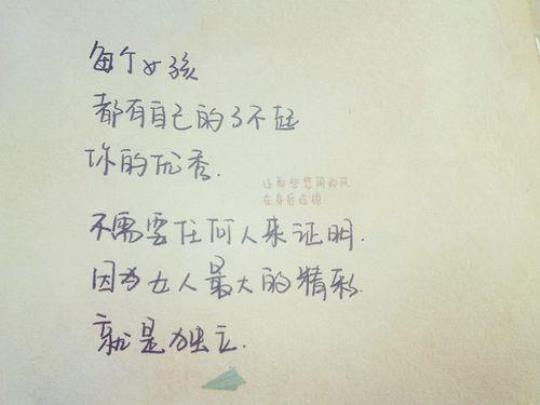 每个女孩
都有自己的了不起
你的优秀.
不需要任何人来证明.
因为女人最大的精彩.
就是独立.